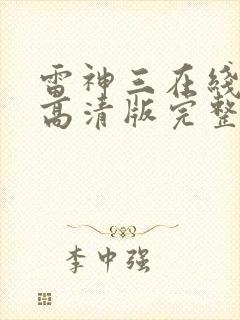 雷神三在线
高清版完整
李中强